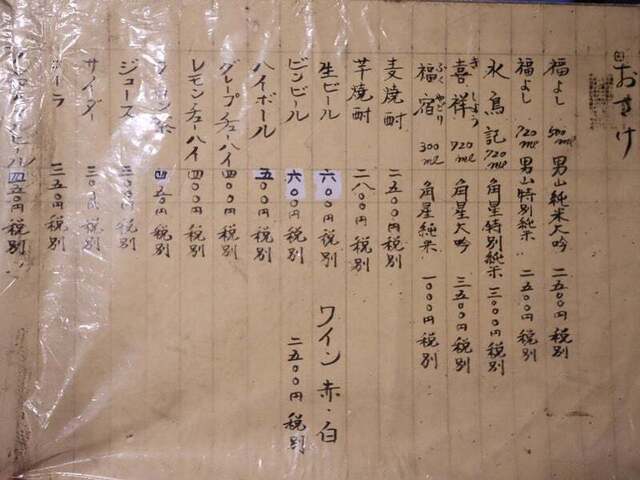 おさけ
福よし 500ml 男山純米大吟 二五〇〇円 税別
福よし 720ml 男山特別純米 二五〇〇円 税別
水鳥記 720ml 角星特別純米 三〇〇〇円 税別
喜祥 きしょう 720ml 角星大吟 三五〇〇円 税別
福宿 ふくやどり 300ml 角星純米 一〇〇〇円 税別
麦焼酎 二五〇〇円 税別
芋焼酎 二八〇〇円 税別
生ビール 六〇〇円 税別 ワイン 赤・白
ビンビール 六〇〇円 税別 二五〇〇円 税別
ハイボール 五〇〇円 税別
グレープチューハイ 四〇〇円 税別
レモンチューハイ 四〇〇円 税別
ウーロン茶 四五〇円 税別
ジュース 三五〇円 税別
サイダー 三〇〇円 税別
コーラ 三五〇円 税別
ノンアルコールビール 四五〇円 税別